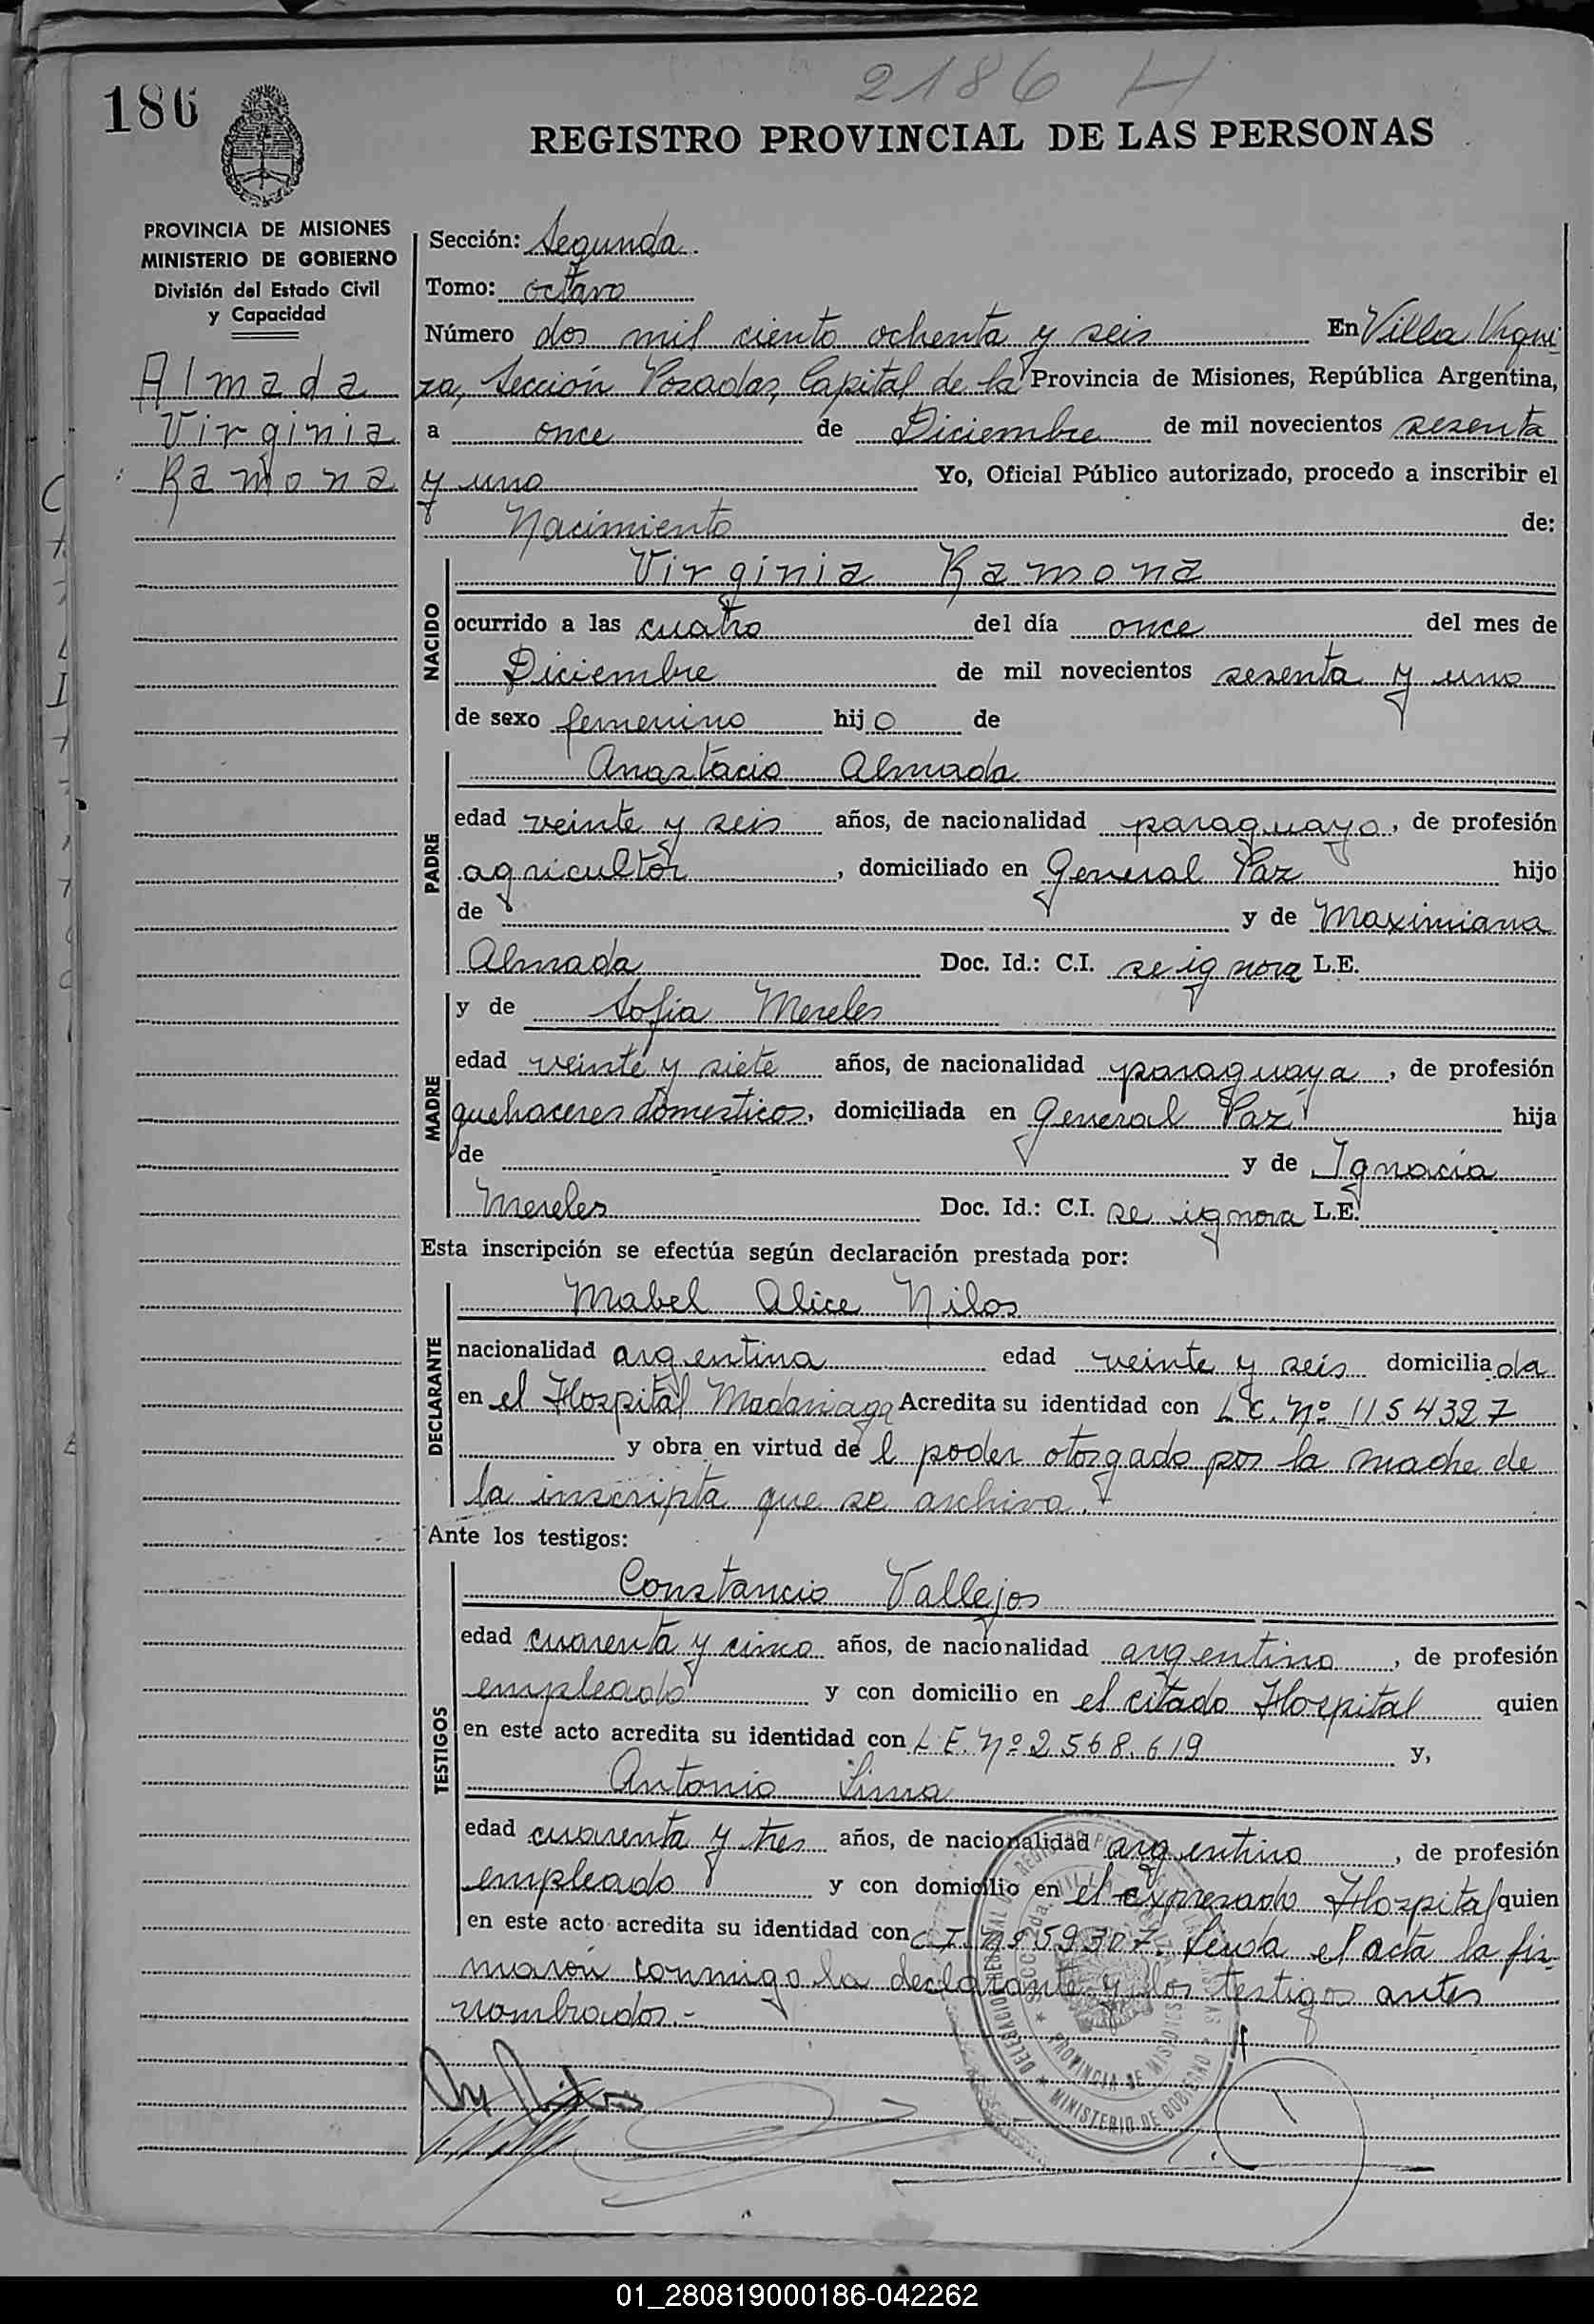 2186 H
186
REGISTRO PROVINCIAL DE LAS PERSONAS
PROVINCIA DE MISIONES
MINISTERIO DE GOBIERNO
División del Estado Civil
y Capacidad
Almada
Virginia
Ramona
Sección: Segunda.
Tomo: octavo
Número dos mil ciento ochenta y seis En Villa Urqui-
za, Sección Posadas, Capital de la Provincia de Misiones, República Argentina,
a once de Diciembre de mil novecientos sesenta
y uno Yo, Oficial Público autorizado, procedo a inscribir el
Nacimiento de:
NACIDO
Virginia Ramona
ocurrido a las cuatro del día once del mes de
Diciembre de mil novecientos sesenta y uno
de sexo femenino hijo de
PADRE
Anastacio Almada
edad veinte y seis años, de nacionalidad paraguayo, de profesión
agricultor, domiciliado en General Paz hijo
de y de Maximiana
Almada Doc. Id.: C.I. se ignora L.E.
MADRE
y de Sofia Mereles
edad veinte y siete años, de nacionalidad paraguaya, de profesión
quehaceres domesticos, domiciliada en General Paz hija
de y de Ignacia
Mereles Doc. Id.: C.I. se ignora L.E.
Esta inscripción se efectúa según declaración prestada por:
DECLARANTE
Mabel Alice Nilos
nacionalidad argentina edad veinte y seis domiciliada
en el Hospital Madariaga Acredita su identidad con L.C. Nº 1154327
y obra en virtud del poder otorgado por la madre de
la inscripta que se archiva.
Ante los testigos:
TESTIGOS
Constancio Vallejos
edad cuarenta y cinco años, de nacionalidad argentino, de profesión
empleado y con domicilio en el citado Hospital quien
en este acto acredita su identidad con L.E. Nº 2.568.619 y,
Antonio Lima
edad cuarenta y tres años, de nacionalidad argentino, de profesión
empleado y con domicilio en el expresado Hospital quien
en este acto acredita su identidad con C.I. Nº 59307. Leida el acta la fir-
maron conmigo la declarante y los testigos antes
nombrados.-
PROVINCIA DE MISIONES
MINISTERIO DE GOBIERNO
01_280819000186-042262